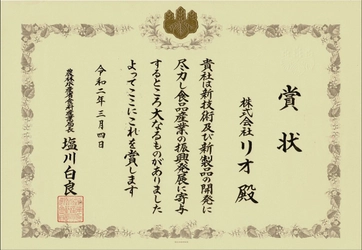 賞状
株式会社 リオ 殿
貴社は新技術及び新製品の開発に
尽力し食品産業の振興発展に寄与
するところ大なるものがありました
よってここにこれを賞します
令和二年三月四日
農林水産省食料産業局長 塩川白良